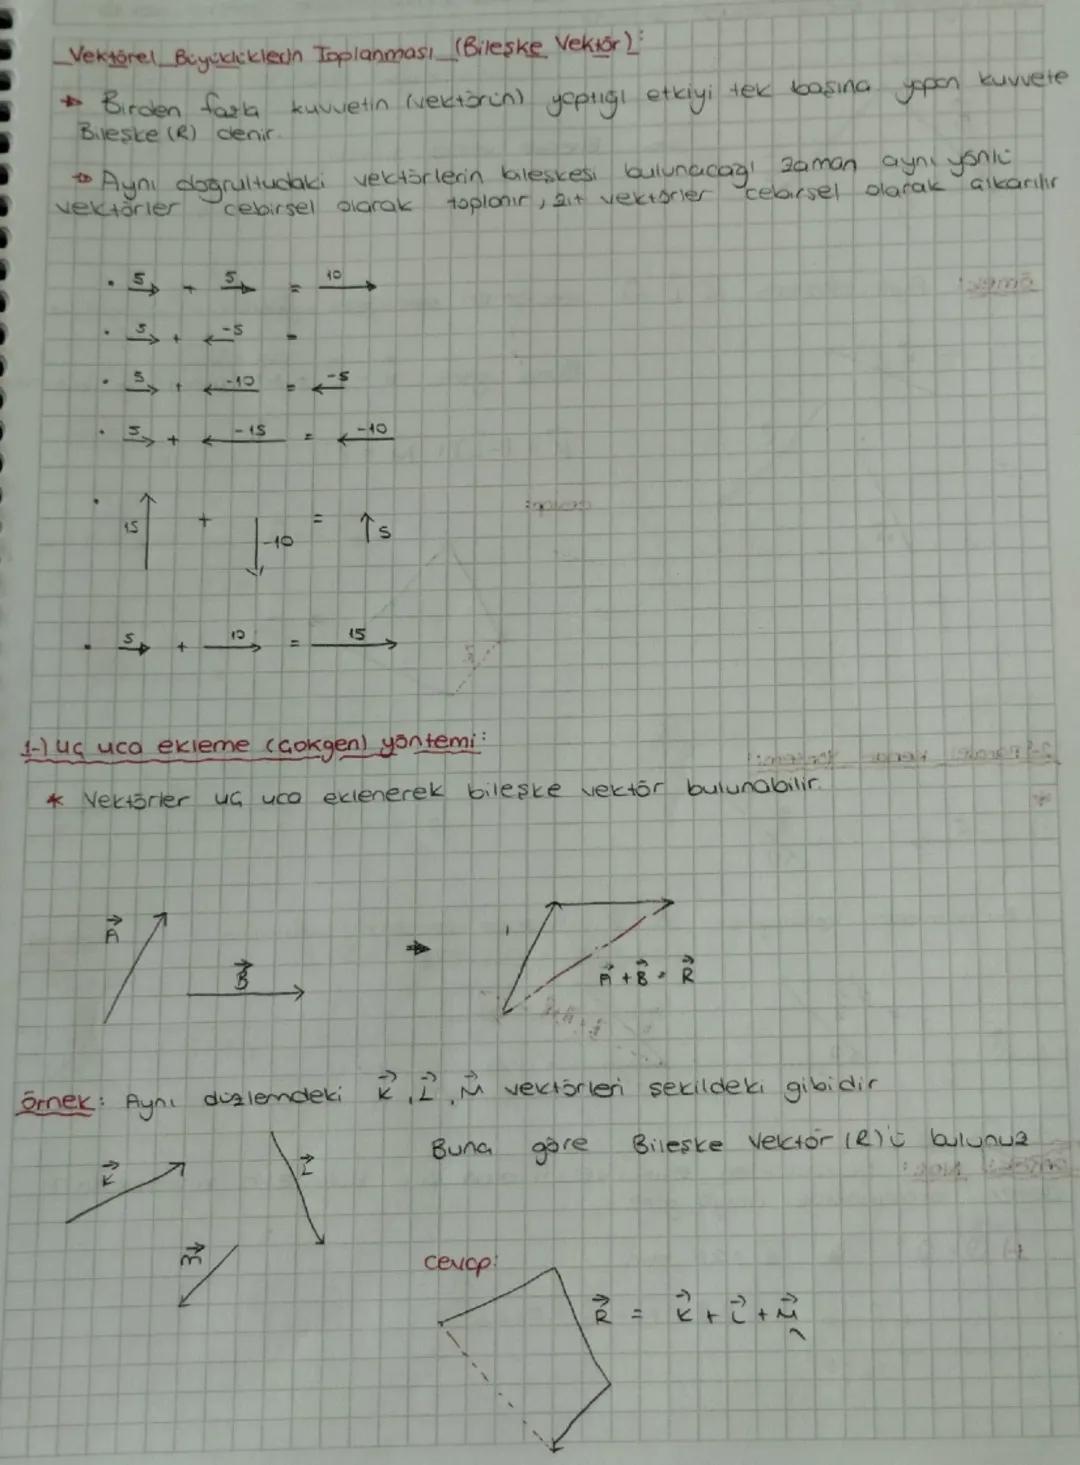 Vektörel Büyüklüklerin Toplanması (Bileşke Vektör):
Birden fazla kuvvetin (vektörün) yaptığı etkiyi tek başına yapan kuvvete
Bileşke (R) denir.
Aynı doğrultudaki vektörlerin bileşkesi bulunacağı zaman aynı yönlü
vektörler cebirsel olarak toplanır, zıt vektörler cebirsel olarak çıkarılır
• 5 + 5 = 10
• 5 + -5 =
• 5 + -10 = -5
• 5 + -15 = -10
• 15 + -10 = 5
• 5 + 10 = 15
1-) uç uca ekleme (Çokgen) yöntemi:
* Vektörler uç uca eklenerek bileşke vektör bulunabilir.
A
B
A + B = R
Örnek: Aynı düzlemdeki K, L, M vektörleri şekildeki gibidir
Buna göre Bileşke Vektör (R)'ü bulunuz
K
L
M
Cevap:
R = K + L + M